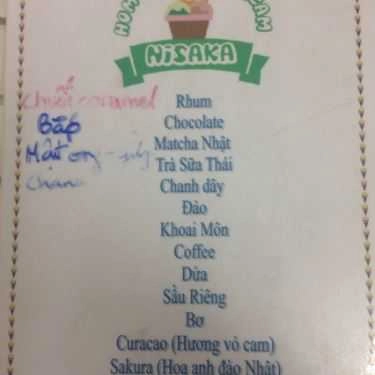 NiSAKA
caramel
Bắp
Mật ong
Rhum
Chocolate
Matcha Nhật
Trà Sữa Thái
Chanh dây
Đào
Khoai Môn
Coffee
Dừa
Sầu Riêng
Bơ
Curacao (Hương vỏ cam)
Sakura (Hoa anh đào Nhật)